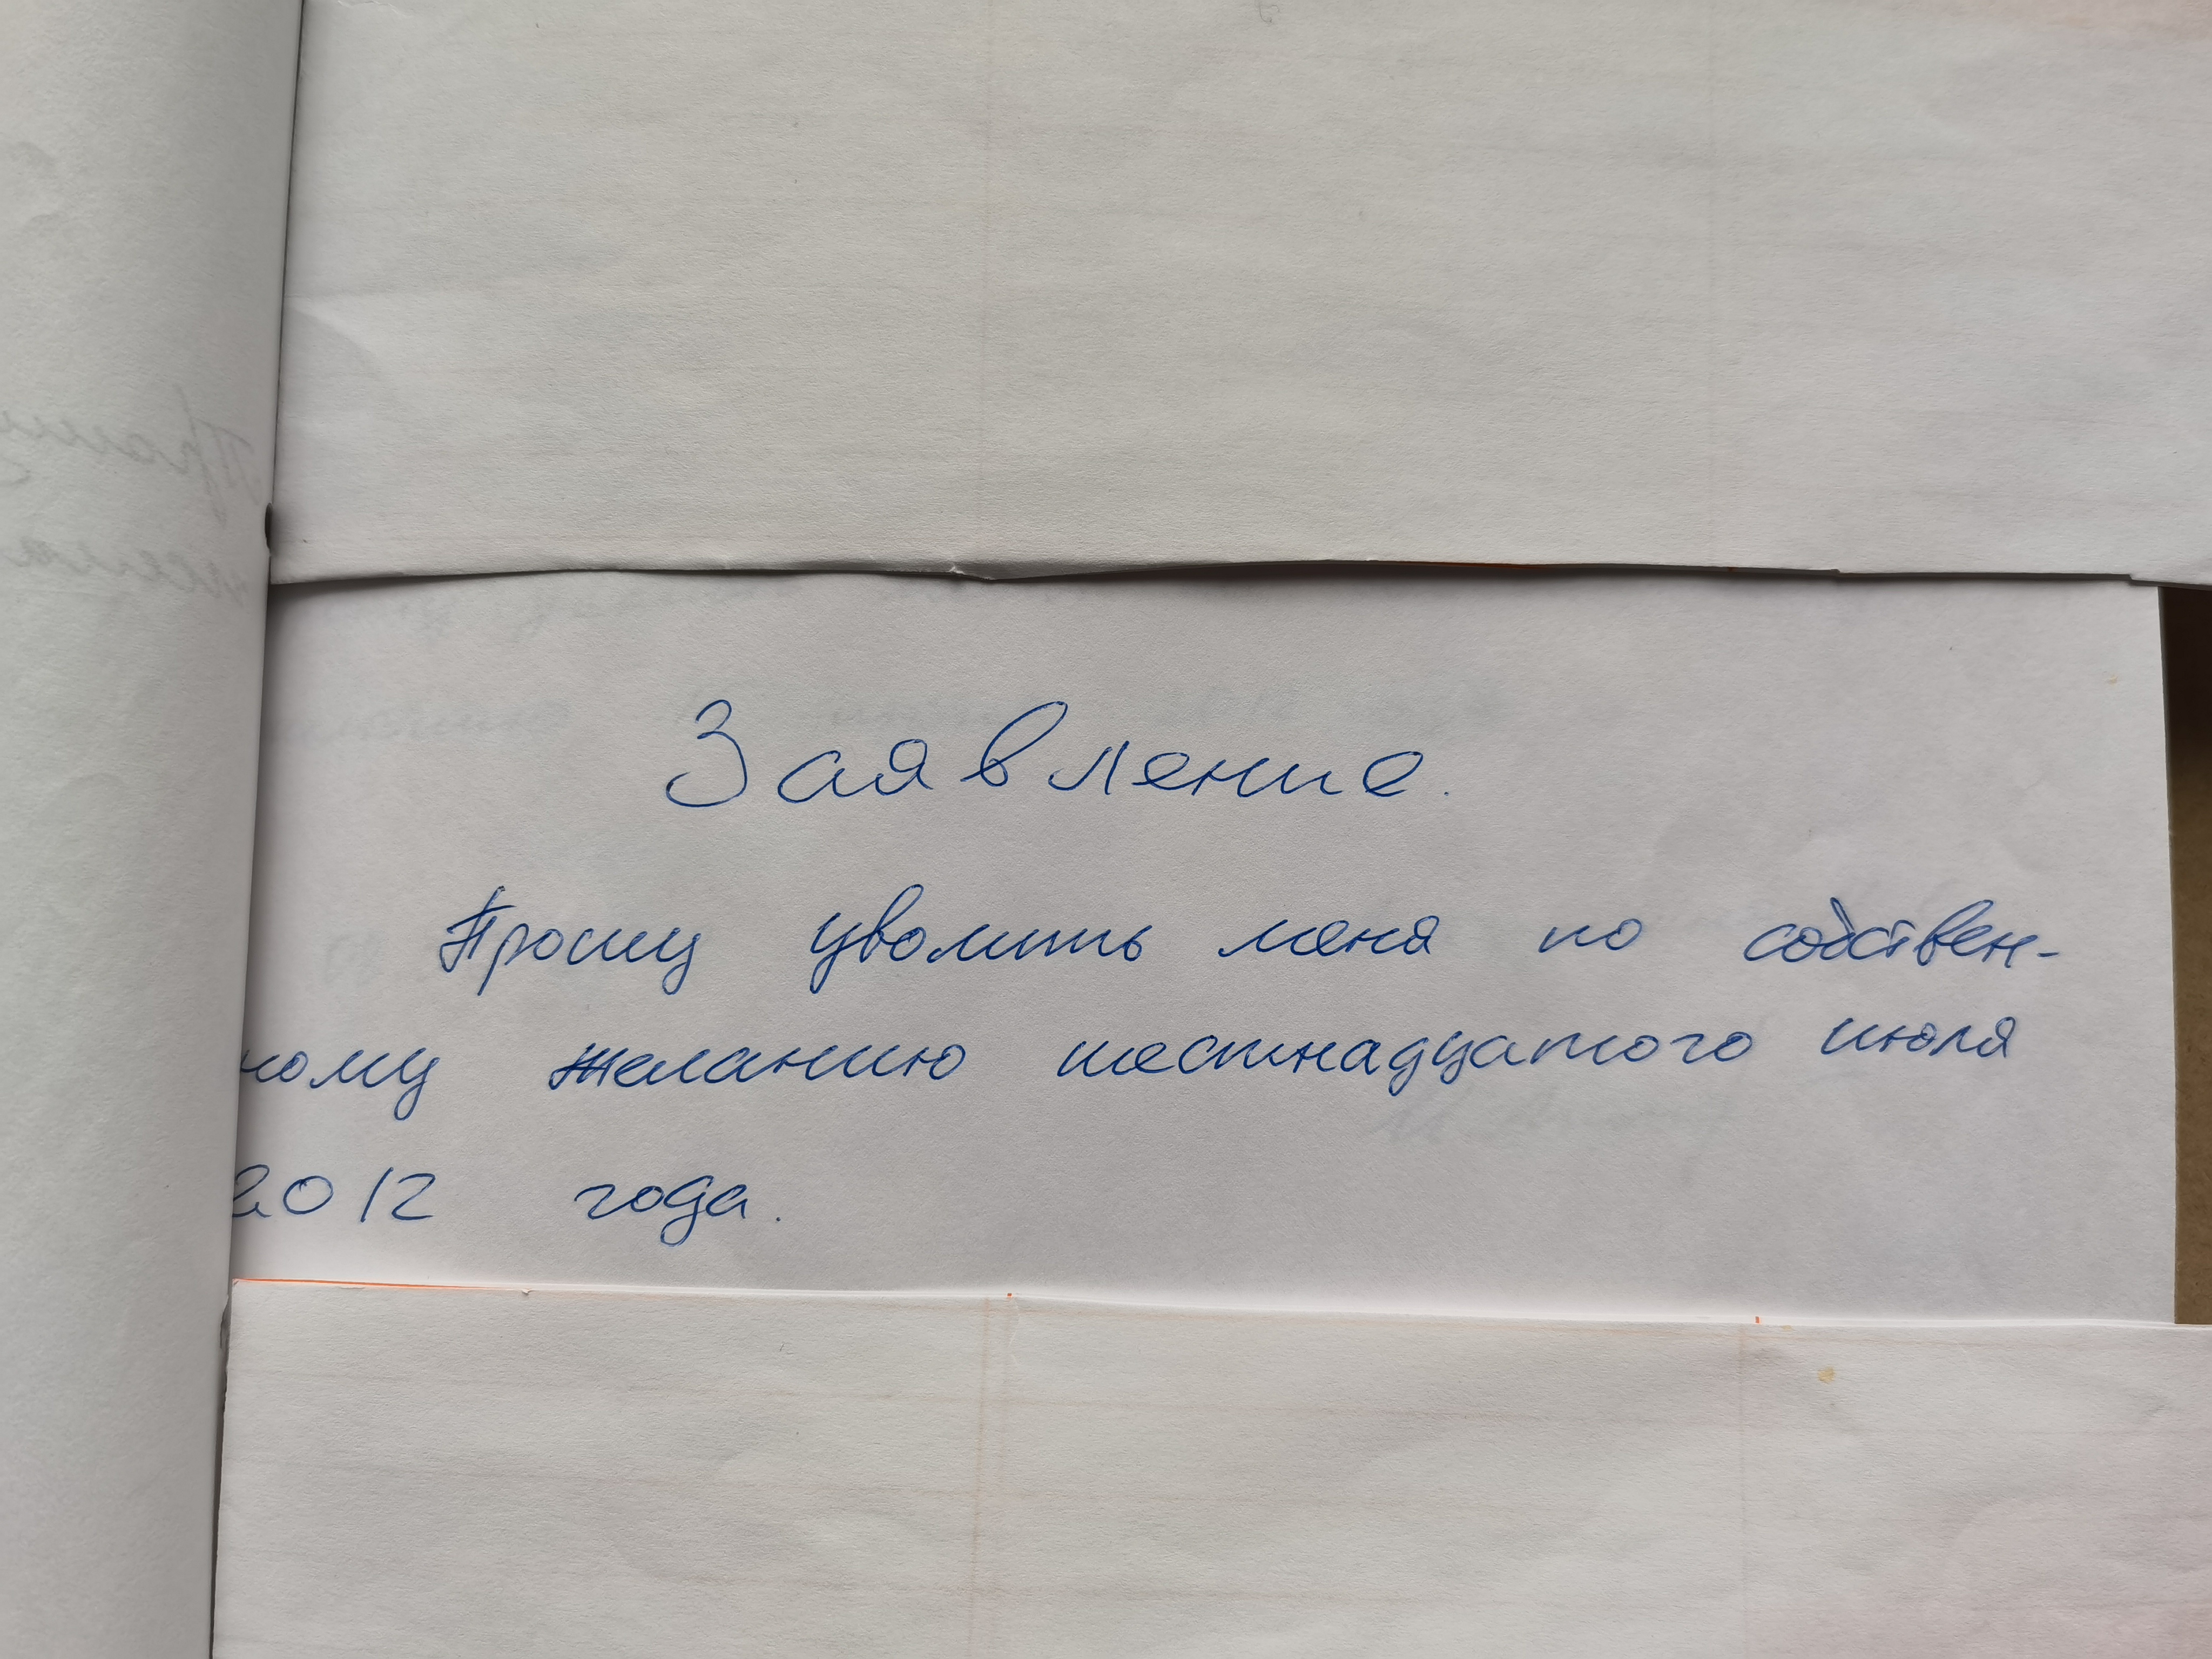 Заявление.
Прошу уволить меня по собствен-
ному желанию шестнадцатого июля
2012 года.